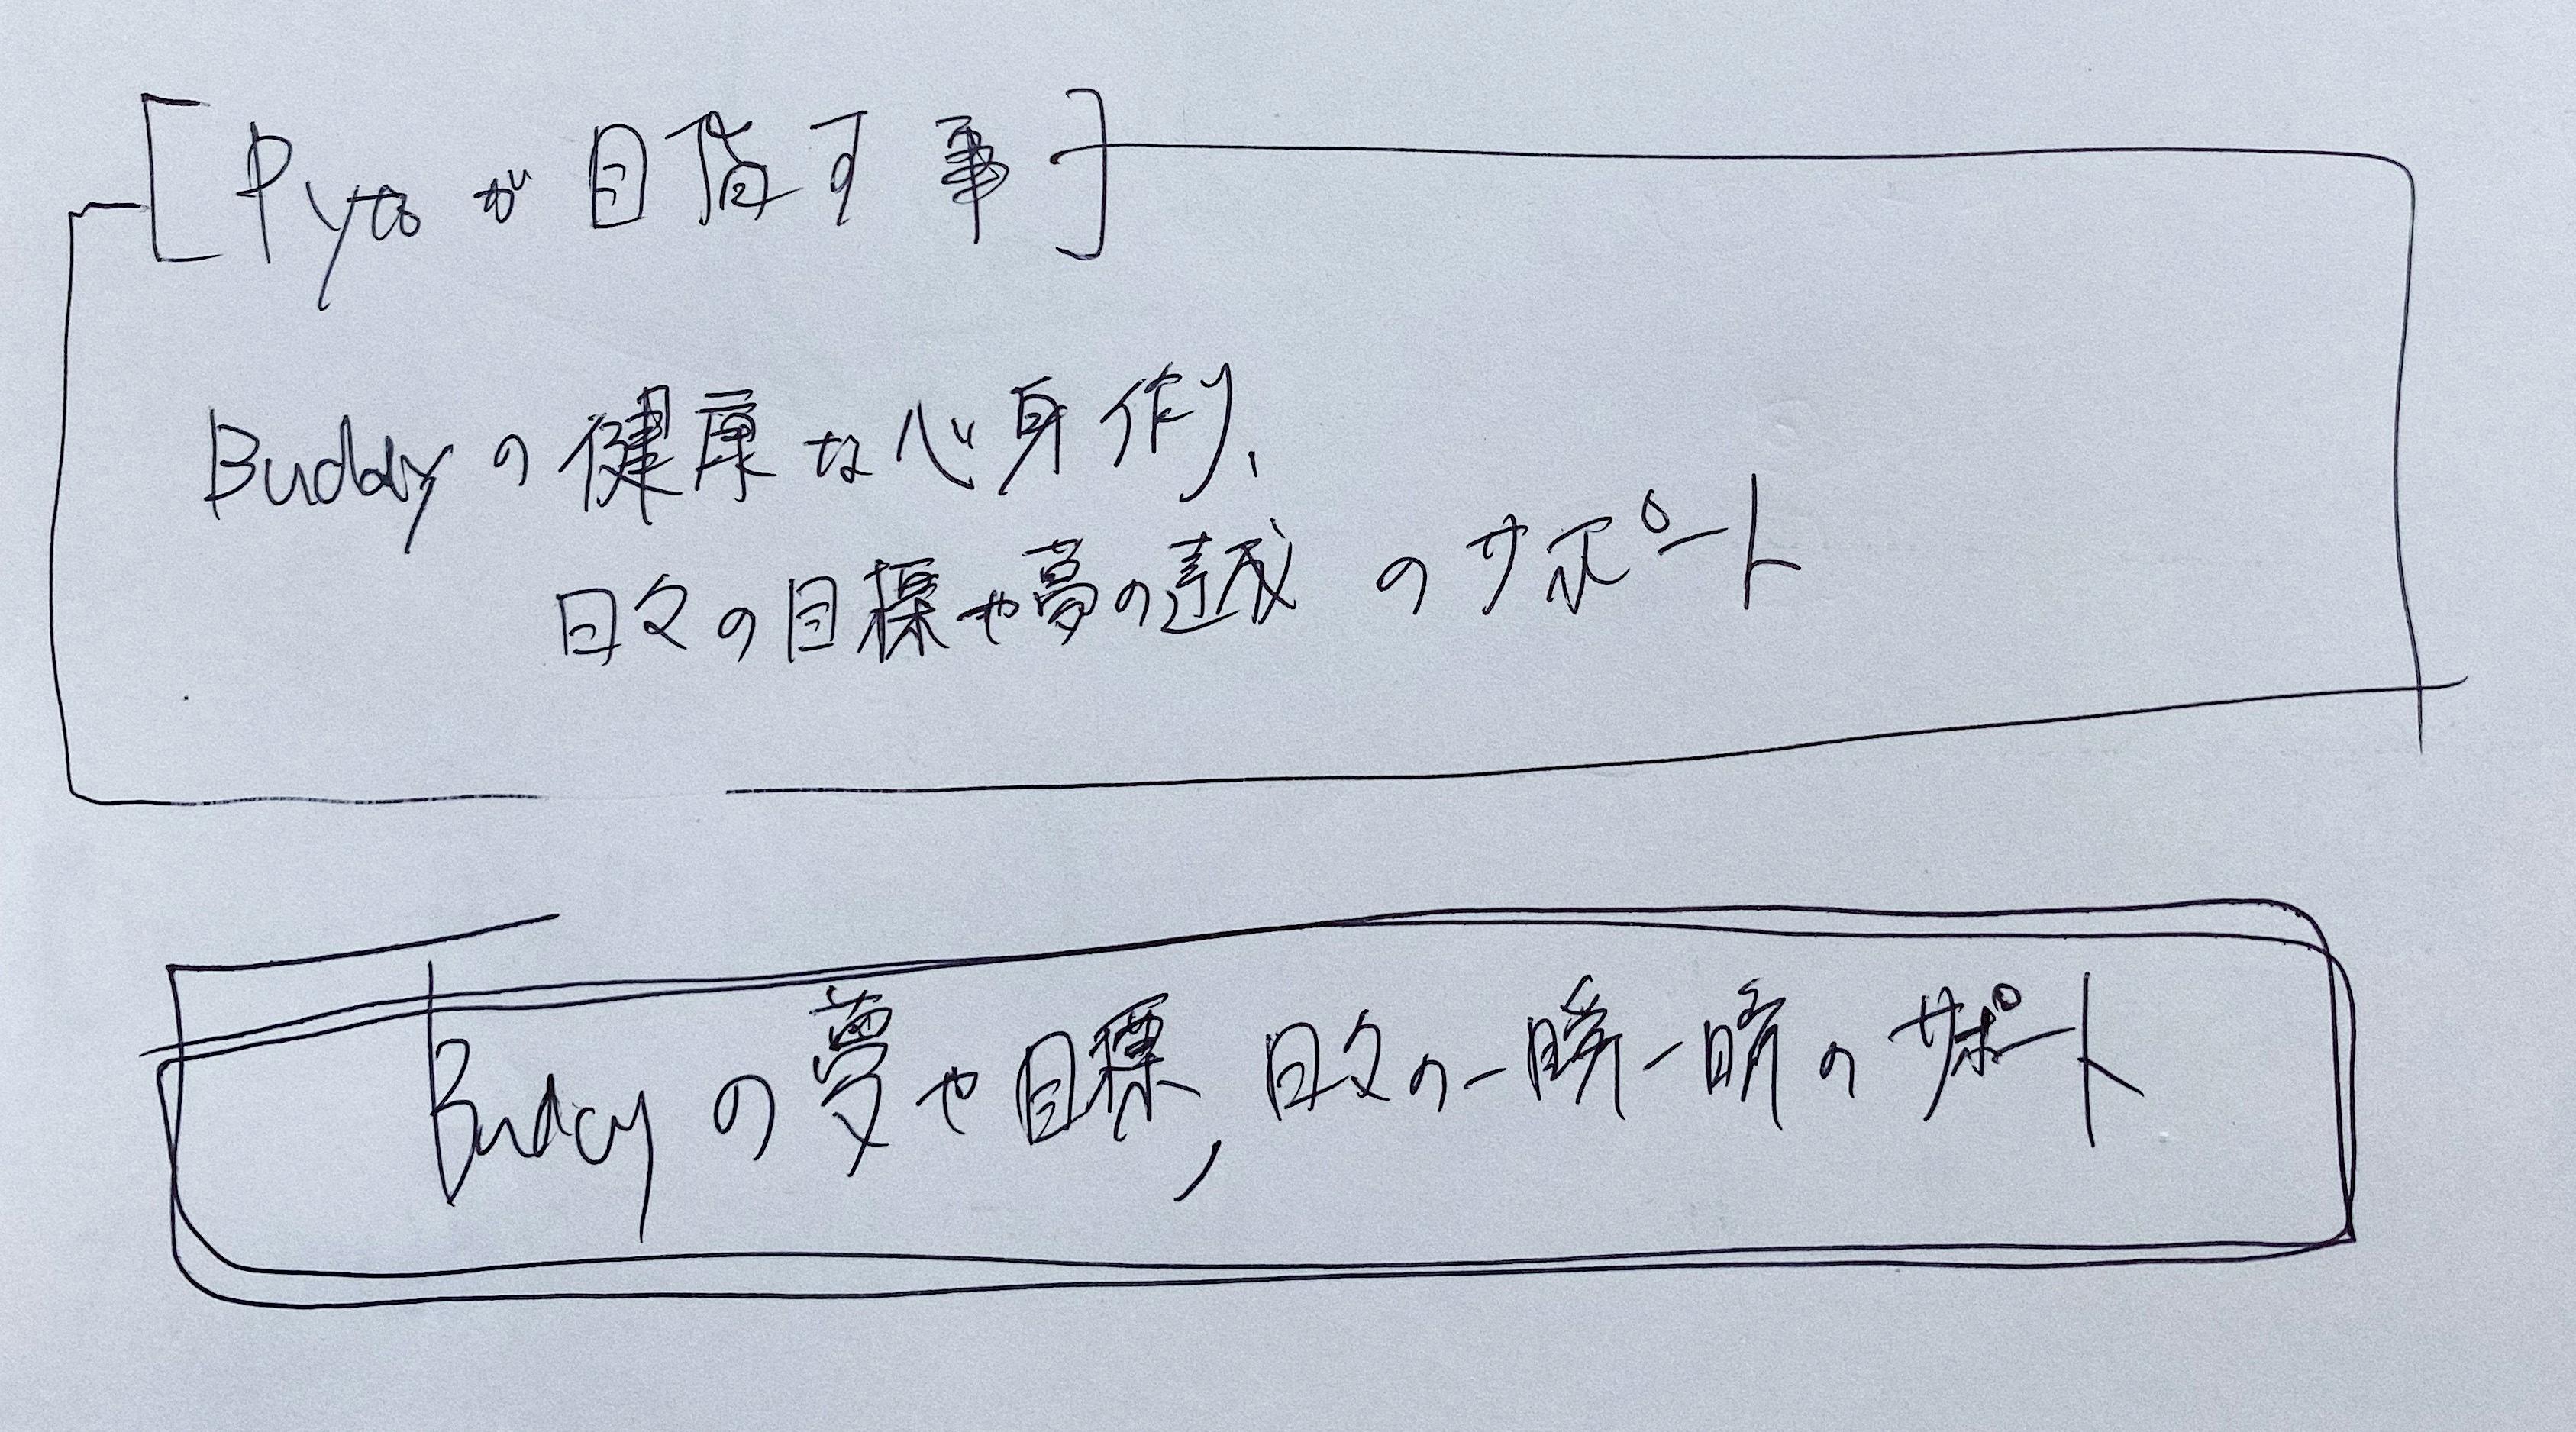 [Pytoが目指す事]
Buddyの健康な心身作り、
日々の目標や夢の達成のサポート
Buddyの夢や目標,日々の一瞬一瞬のサポート